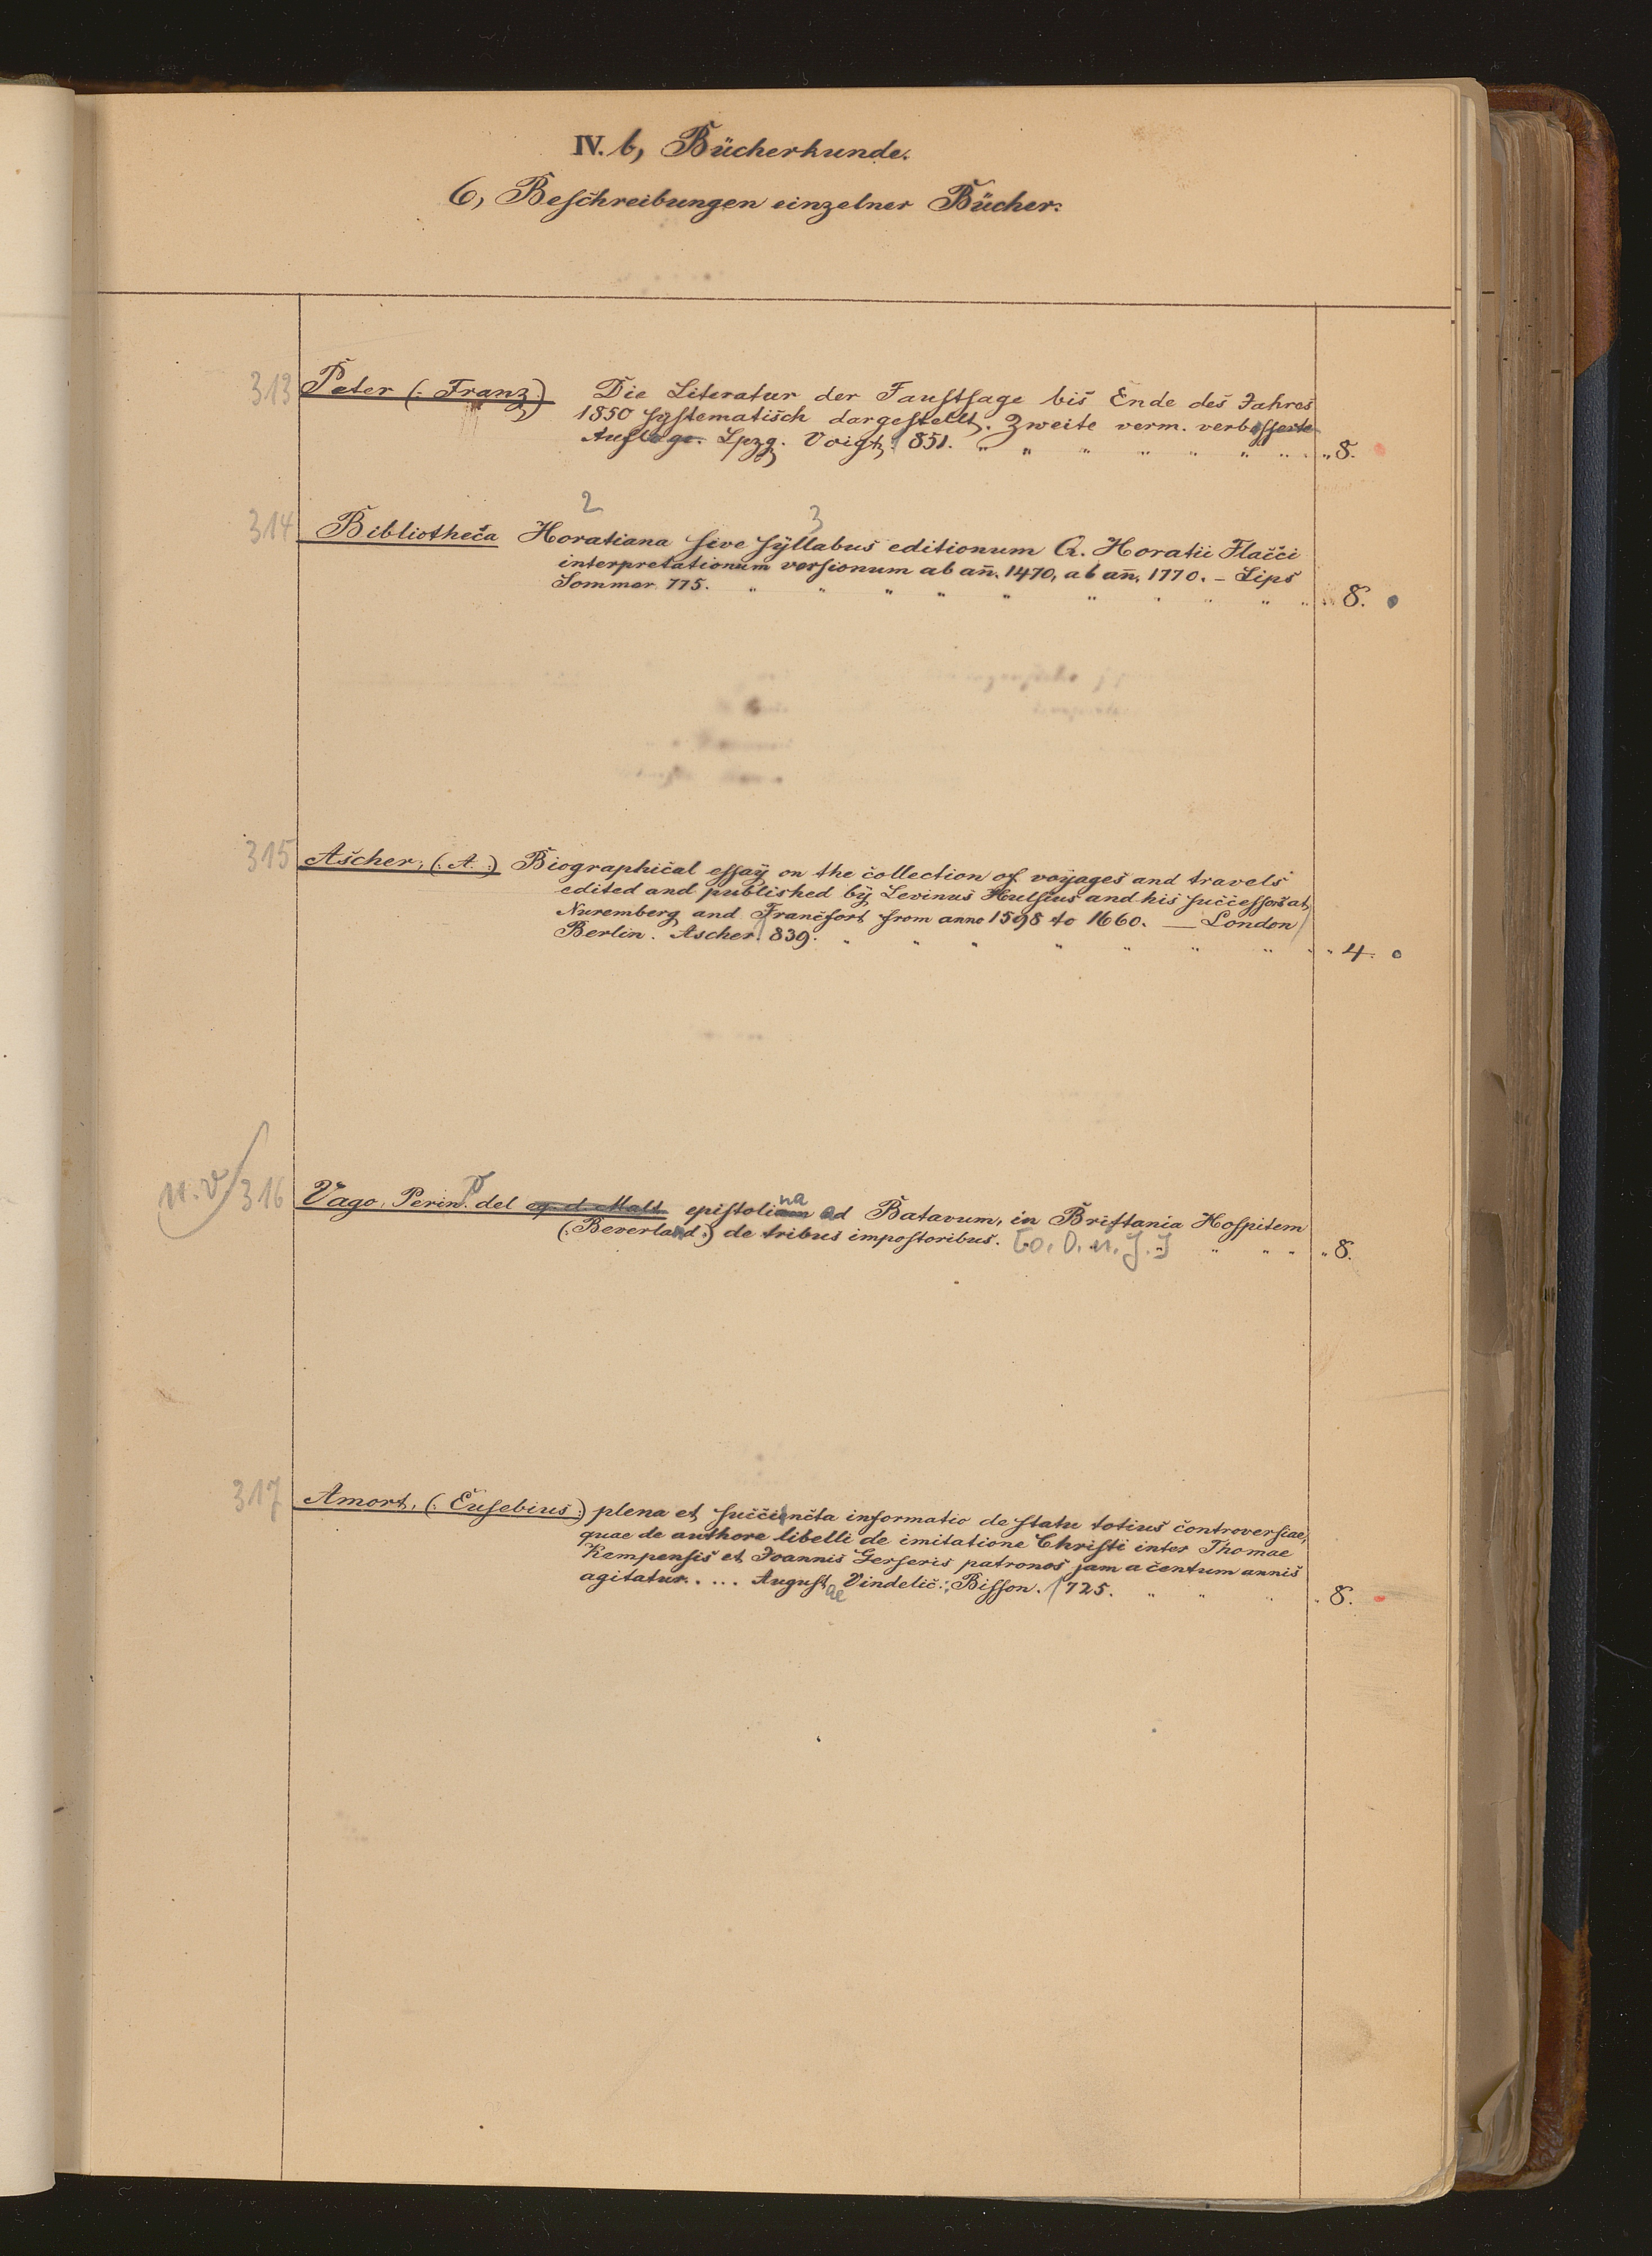 IV. b, Bücherkunde.
6, Beschreibungen einzelner Bücher.
313 Peter (: Franz) Die Literatur der Faustsage bis Ende des Jahres
1850 systematisch dargestellt. Zweite verm. verbesserte
Auflage. Lpzg. Voigt 1851. " " " " " " " " 8.
2 3
314 Bibliotheca Horatiana sive syllabus editionum Q. Horatii Flacci
interpretationum versionum ab añ. 1470, ab añ. 1770. – Lips
Sommer 775. " " " " " " " " " " " 8.
315 Ascher, (: A. :) Biographical essay on the collection of voyages and travels
edited and published by Levinus Hulsius and his successors at
Nuremberg and Francfort from anno 1598 to 1660. — London/
Berlin. Ascher. 1839. " " " " " " " " " 4.
n. v/ 316 Vago, Perino del eq. d. Malt. epistoliana ad Batavum, in Brittania Hospitem
(: Beverland :) de tribus impostoribus. [o. O. u. J.] " " " " 8.
317 Amort, (: Eusebius :) plena et succincta informatio de statu totius controversiae,
quae de authore libelli de imitatione Christi inter Thomae
Kempensis et Joannis Gerseris patronos jam a centum annis
agitatur. ... Augustae Vindelic.: Bisson. 1725. " " " " 8.